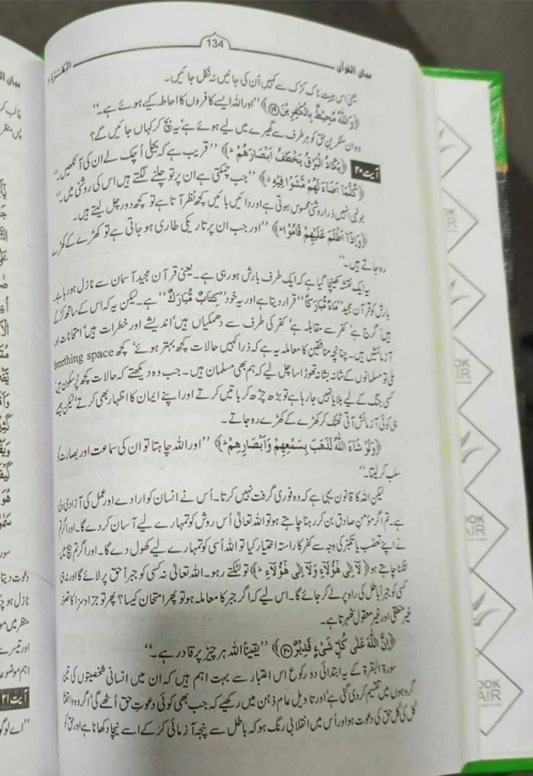 البقرۃ
134
بیان القرآن
یعنی اس ہیبت ناک کڑک سے کہیں اُن کی جانیں نہ نکل جائیں۔
﴿وَاللّٰهُ مُحِيْطٌۢ بِالْكٰفِرِيْنَ ﴿۱۹﴾﴾ ’’اور اللہ ایسے کافروں کا احاطہ کیے ہوئے ہے۔‘‘
وہ ان منکرینِ حق کو ہر طرف سے گھیرے میں لیے ہوئے ہے‘ یہ بچ کر کہاں جائیں گے؟
آیت ۲۰ ﴿يَكَادُ الْبَرْقُ يَخْطَفُ اَبْصَارَهُمْ ؕ﴾ ’’قریب ہے کہ بجلی اُچک لے ان کی آنکھیں۔‘‘
﴿كُلَّمَآ اَضَآءَ لَهُمْ مَّشَوْا فِيْهِ ۙ﴾ ’’جب چمکتی ہے ان پر تو چلنے لگتے ہیں اس کی روشنی میں۔‘‘
جونہی انہیں ذرا روشنی محسوس ہوتی ہے اور دائیں بائیں کچھ نظر آتا ہے تو کچھ دور چل لیتے ہیں۔
﴿وَاِذَآ اَظْلَمَ عَلَيْهِمْ قَامُوْا ؕ﴾ ’’اور جب ان پر تاریکی طاری ہو جاتی ہے تو کھڑے کے کھڑے
رہ جاتے ہیں۔‘‘
یہ ایک نقشہ کھینچا گیا ہے کہ ایک طرف بارش ہو رہی ہے۔ یعنی قرآن مجید آسمان سے نازل ہو رہا ہے۔
بارش کو قرآن مجید ’’مَآءً مُّبٰرَكًا‘‘ قرار دیتا ہے اور یہ خود ’’كِتَابٌ مُّبَارَكٌ‘‘ ہے۔ لیکن یہ کہ اس کے ساتھ کڑکے
ہیں‘ گرج ہے‘ کفر سے مقابلہ ہے‘ کفر کی طرف سے دھمکیاں ہیں‘ اندیشے اور خطرات ہیں‘ امتحانات اور
آزمائشیں ہیں۔ چنانچہ منافقین کا معاملہ یہ ہے کہ ذرا کہیں حالات کچھ بہتر ہوئے‘ کچھ breething space
ملی تو مسلمانوں کے شانہ بشانہ تھوڑا سا چل لیے کہ ہم بھی مسلمان ہیں۔ جب وہ دیکھتے کہ حالات کچھ پُرسکون ہیں
کسی جنگ کے لیے بلایا نہیں جا رہا ہے تو بڑھ چڑھ کر باتیں کرتے اور اپنے ایمان کا اظہار بھی کرتے‘ لیکن جیسے
ہی کوئی آزمائش آتی ٹھٹک کر کھڑے کے کھڑے رہ جاتے۔
﴿وَلَوْ شَآءَ اللّٰهُ لَذَهَبَ بِسَمْعِهِمْ وَاَبْصَارِهِمْ ؕ﴾ ’’اور اللہ چاہتا تو ان کی سماعت اور بصارت کو
سلب کر لیتا۔‘‘
لیکن اللہ کا قانون یہی ہے کہ وہ فوری گرفت نہیں کرتا۔ اُس نے انسان کو ارادے اور عمل کی آزادی دی
ہے۔ تم اگر مؤمنِ صادق بن کر رہنا چاہتے ہو تو اللہ تعالیٰ اُس روش کو تمہارے لیے آسان کر دے گا۔ اور اگر تم
نے اپنے تعصب یا تکبر کی وجہ سے کفر کا راستہ اختیار کیا تو اللہ اُسی کو تمہارے لیے کھول دے گا۔ اور اگر تم بیچ میں
لٹکنا چاہتے ہو ﴿لَآ اِلٰى هٰٓؤُلَآءِ وَلَآ اِلٰى هٰٓؤُلَآءِ ؕ﴾ تو لٹکتے رہو۔ اللہ تعالیٰ نہ کسی کو جبراً حق پر لائے گا اور نہ ہی
کسی کو جبراً باطل کی راہ پر لے کر جائے گا۔ اس لیے کہ اگر جبر کا معاملہ ہو تو پھر امتحان کیسا؟ پھر تو جزا و سزا کا تصور
غیر منطقی اور غیر معقول ٹھہرتا ہے۔
﴿اِنَّ اللّٰهَ عَلٰى كُلِّ شَىْءٍ قَدِيْرٌ ﴿۲۰﴾﴾ ’’یقیناً اللہ ہر چیز پر قادر ہے۔‘‘
سورۃ البقرۃ کے یہ ابتدائی دو رکوع اس اعتبار سے بہت اہم ہیں کہ ان میں انسانی شخصیتوں کی تین
گروہوں میں تقسیم کر دی گئی ہے‘ اور تاویلِ عام ذہن میں رکھیے کہ جب بھی کوئی دعوتِ حق اُٹھے گی‘ اگر وہ واقعتاً
کل کی کل حق کی دعوت ہو اور اس میں انقلابی رنگ ہو کہ باطل سے پنجہ آزمائی کر کے اسے نیچا دکھانا ہے اور حق کو
آیت ۲۱
’’اے لوگو
BOOK
FAIR